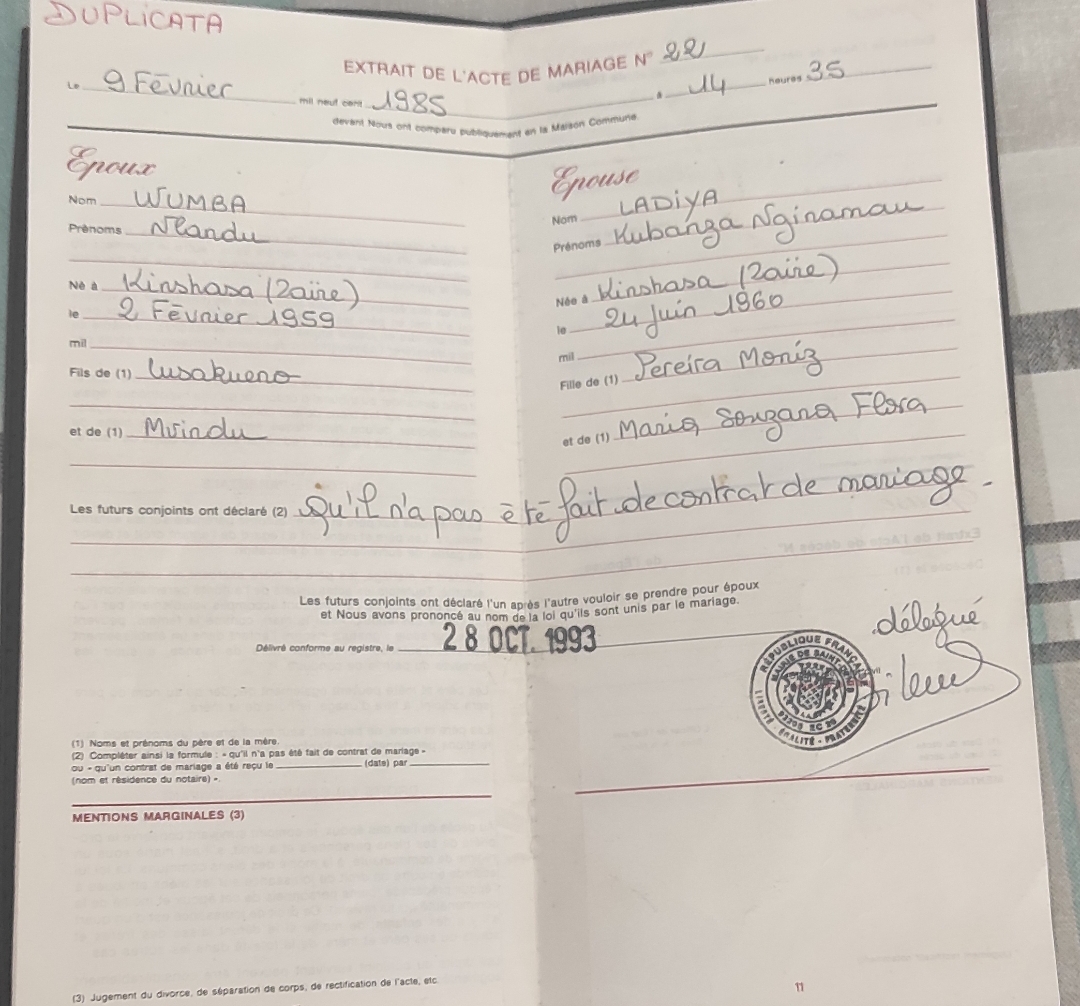 DUPLICATA
EXTRAIT DE L'ACTE DE MARIAGE N° 22
Le 9 Février mil neuf cent 1985 à 14 heures 35
devant Nous ont comparu publiquement en la Maison Commune.
Epoux
Nom WUMBA
Prénoms Nlandu
Né à Kinshasa (Zaïre)
le 2 Février 1959
mil
Fils de (1) Lusakueno
et de (1) Mvindu
Epouse
Nom LADIYA
Prénoms Kubanza Nginamau
Née à Kinshasa (Zaïre)
le 24 Juin 1960
mil
Fille de (1) Pereira Moniz
et de (1) Maria Souzana Flora
Les futurs conjoints ont déclaré (2) qu'il n'a pas été fait de contrat de mariage.
Les futurs conjoints ont déclaré l'un après l'autre vouloir se prendre pour époux
et Nous avons prononcé au nom de la loi qu'ils sont unis par le mariage.
Délivré conforme au registre, le 28 OCT. 1993
délégué
RÉPUBLIQUE FRANÇAISE
MAIRIE DE SAINT-DENIS
LIBERTÉ - ÉGALITÉ - FRATERNITÉ
(1) Noms et prénoms du père et de la mère.
(2) Compléter ainsi la formule : « qu'il n'a pas été fait de contrat de mariage »
ou « qu'un contrat de mariage a été reçu le (date) par
(nom et résidence du notaire) ».
MENTIONS MARGINALES (3)
(3) Jugement du divorce, de séparation de corps, de rectification de l'acte, etc.
11